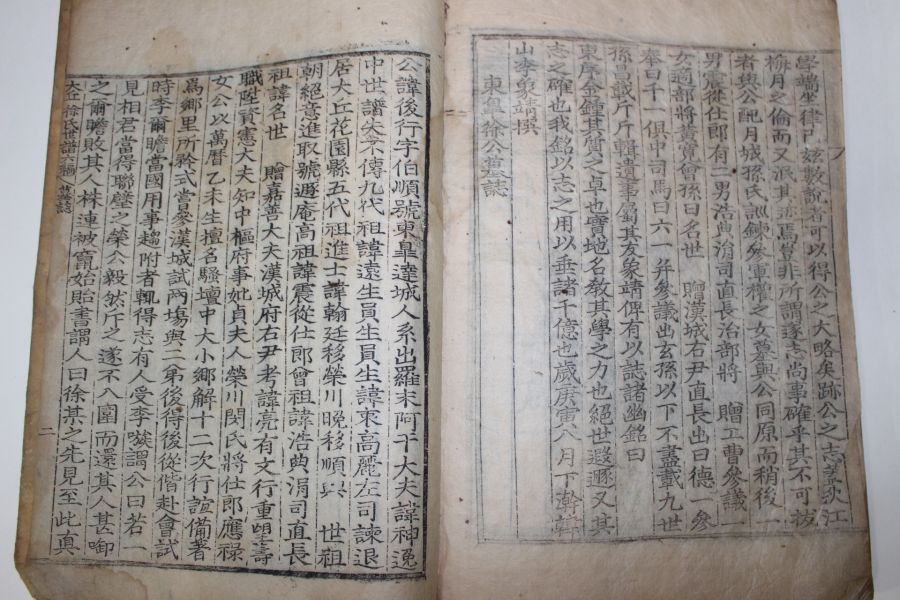 學端坐律己玆數說者可以得公之大略矣跡公之志蓋秋江
梅月之倫而又泯其迹焉豈非所謂遂志尚事確乎其不可拔
者與公配月城孫氏訓鍊參軍權之女墓與公同原而稍後一
男震從仕郎有二男浩典涓司直長治部將 贈工曹參議一
女適部將黃寬曾孫曰名世 贈漢城右尹直長出曰德一參
奉曰千一俱中司馬曰六一幷參議出玄孫以下不盡載九世
孫昌載斤斤輯遺事屬其友象靖俾有以誌諸幽銘曰
東序金鍾其質之卓也實地名敎其學之力也絕世遯又其
志之確也我銘以志之用以垂諸千億也歲庚寅八月下澣韓
山李象靖撰
東皐徐公墓誌
公諱後行字伯順號東皐達城人系出羅末阿干大夫諱神逸
中世譜失不傳九代祖諱遠生員生員生諱束高麗左司諫退
居大丘花園縣五代祖進士諱翰廷移榮川晩移順興 世祖
朝絕意進取號遯庵高祖諱震從仕郎曾祖諱浩典涓司直長
祖諱名世 贈嘉善大夫漢城府右尹考諱亮有文行重望壽
職陞資憲大夫知中樞府事妣貞夫人榮川閔氏將仕郎應祿
女公以萬曆乙未生擅名騷壇中大小鄕解十二次行誼備著
爲鄕里所矜式嘗參漢城試兩塲與二弟後待後從偕赴會試
時李爾瞻當國用事趨附者輒得志有人受李嗾謂公曰若一
見相君當得聯璧之榮公毅然斥之遂不入圍而還其人甚啣
之爾瞻敗其人株連被竄始貽書謂人曰徐某之先見至此眞
大丘徐氏世譜六編 墓誌
二